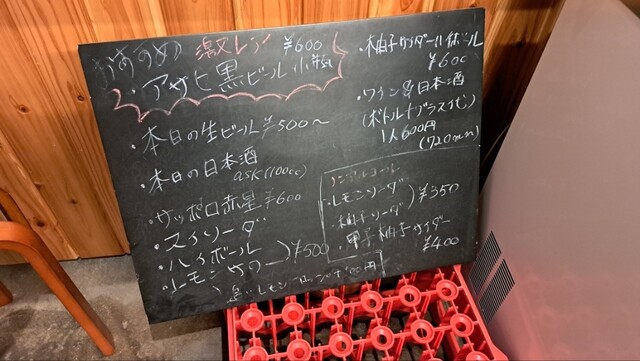 おすすめ 激レア ¥600
・アサヒ黒ビール小瓶
・本日の生ビール ¥500〜
・本日の日本酒
ask(100cc)
・サッポロ赤星 ¥600
・ハイボール
・レモンサワー )¥500
・柚子サイダーハイボール
¥600
・ワイン &日本酒
(ボトル+グラス代)
1人600円
(720mm)
ノンアルコール
・レモンソーダ
・柚子ソーダ )¥350
柚子サイダー
¥400